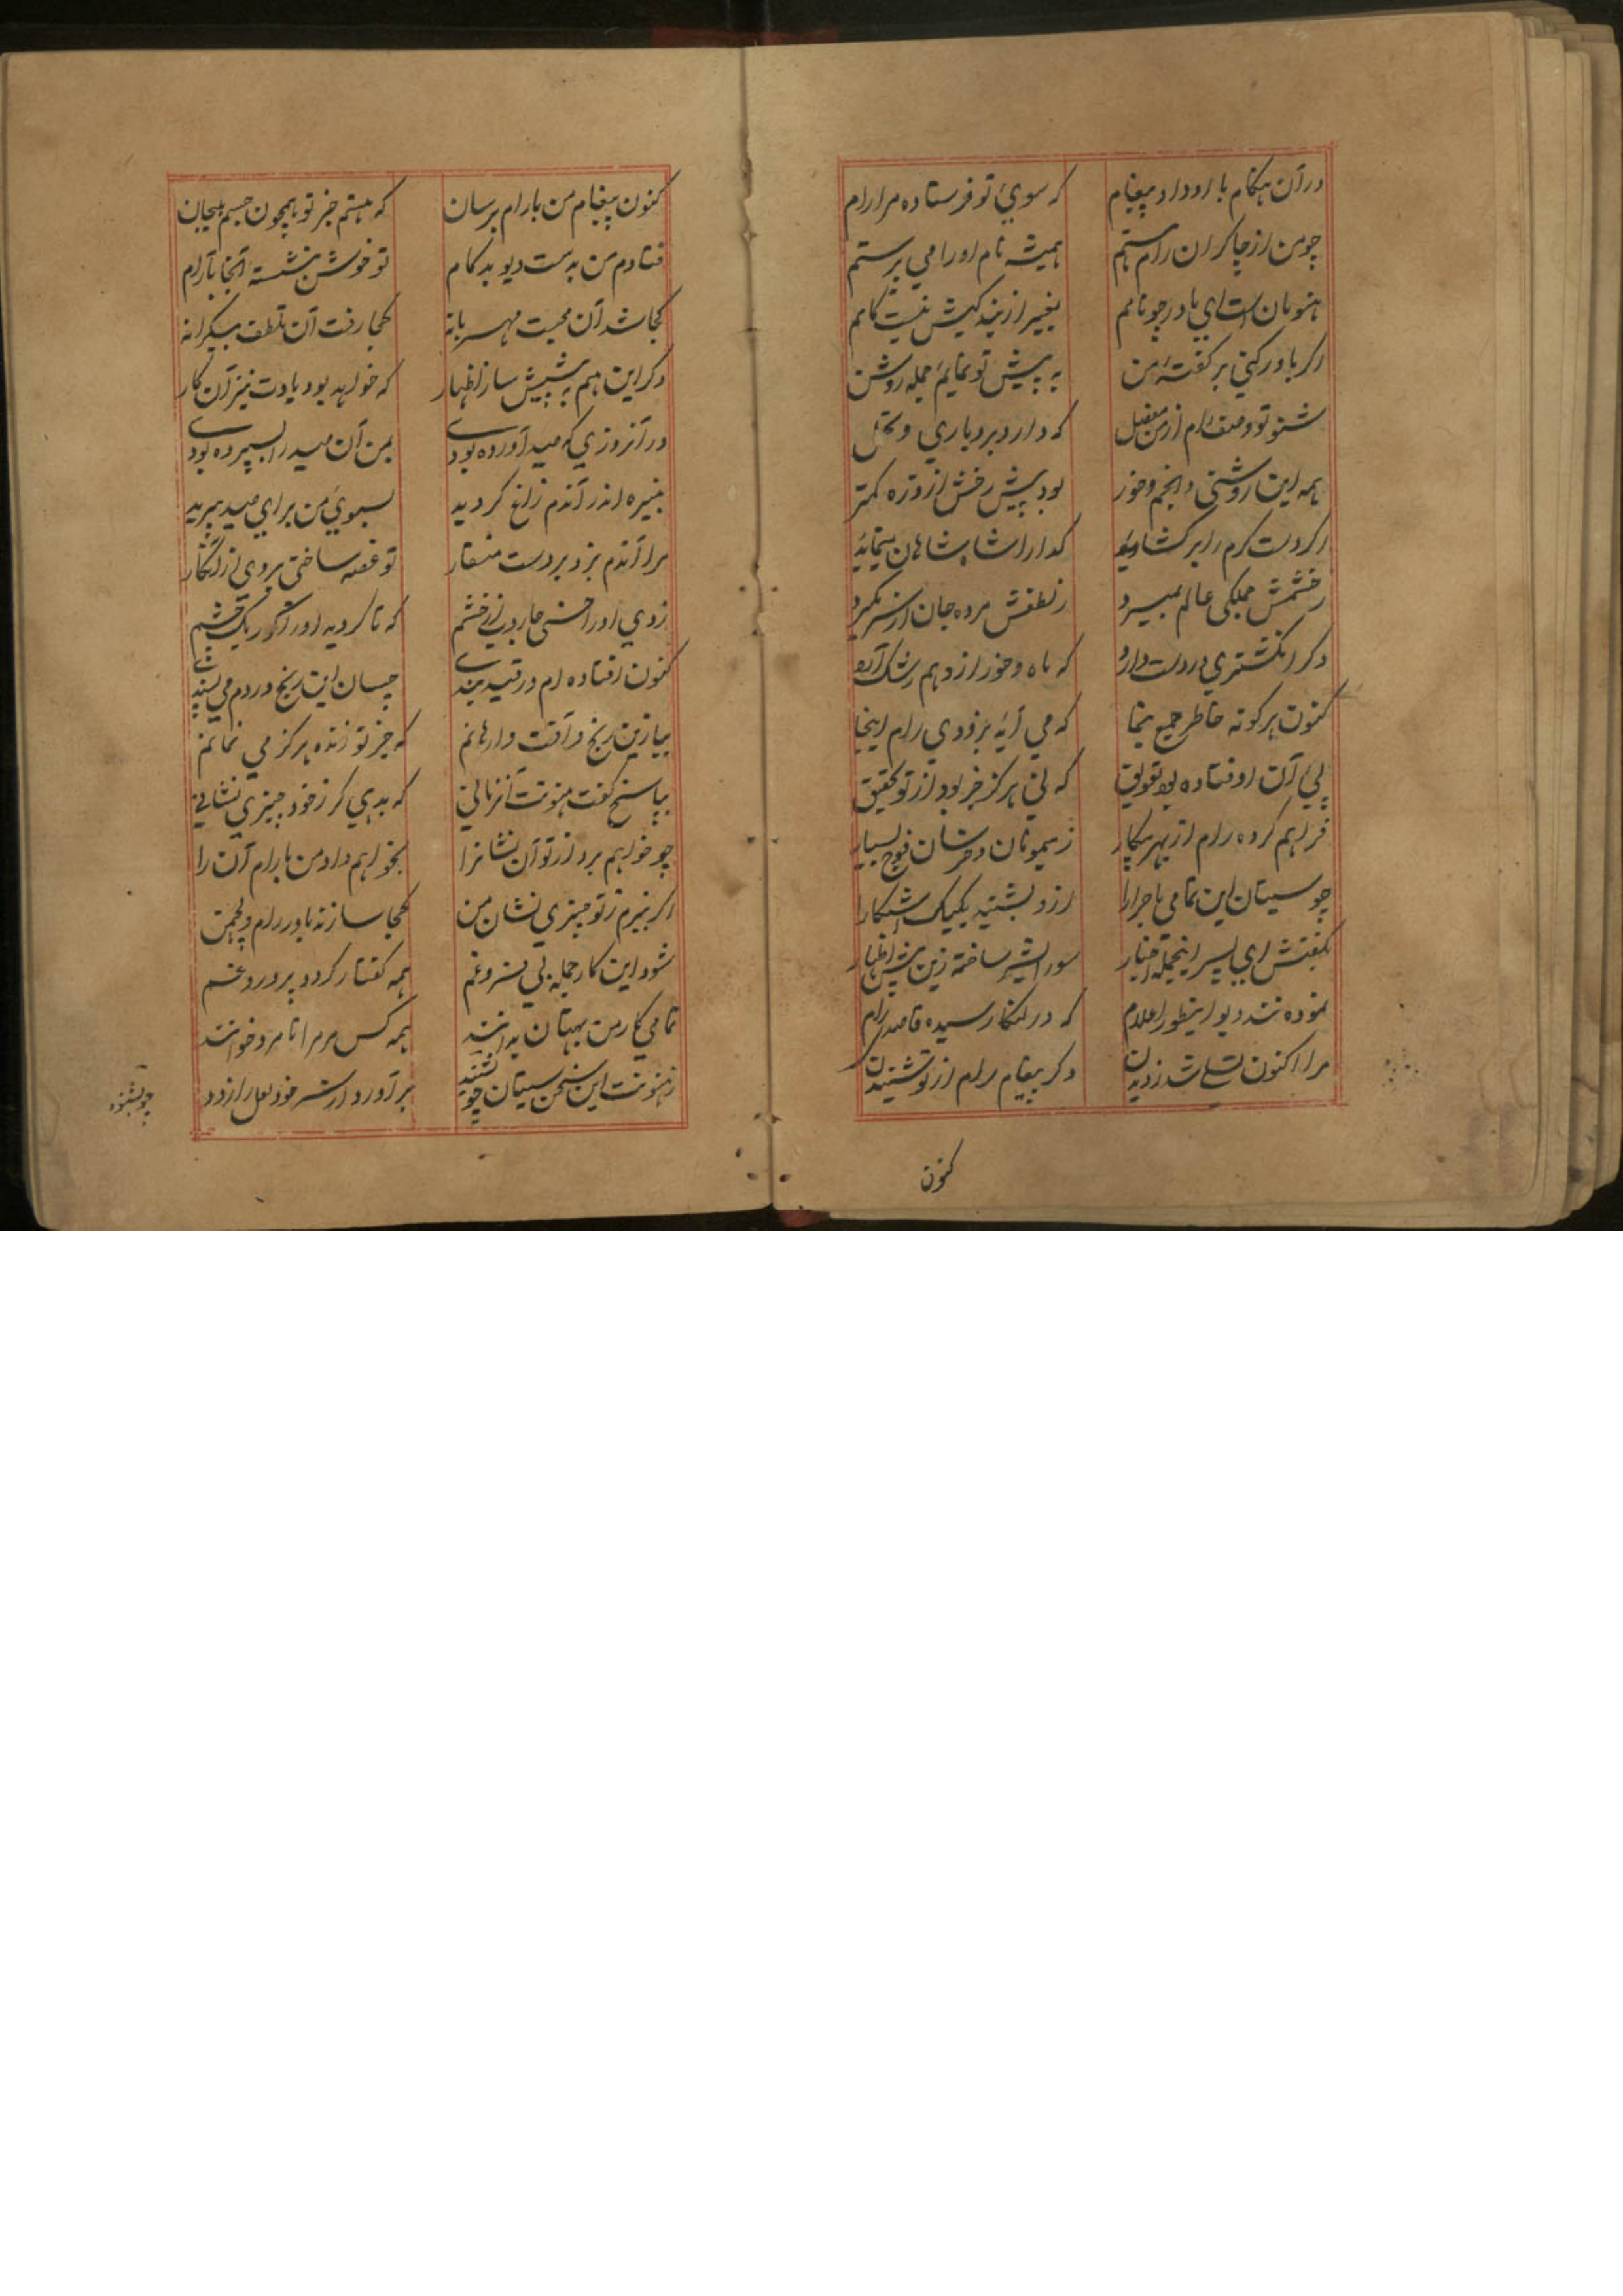 در آن هنگام با او داد پیغام که سوی تو فرستاده مرا رام
چو من از چاکران رام هستم همیشه نام او را می پرستم
هنومان است ای مادر چو نامم بغیر از بندگیش نیست کامم
اگر باور کنی بر گفته من به پیش تو نمایم جمله روشن
شنو تو وصف رام از من مفصل که دارد بردباری و تحمل
همه این روشنی و انجم و خور بود پیش رخش از ذره کمتر
اگر دست کرم را بر کشاید گدا را شاه شاهان مینماید
ز خشمش جملگی عالم بمیرد ز لطفش مرده جان از سر بگیرد
دگر انگشتری در دست دارد که ماه و خور ازو هم رشک آرد
کنون هرگونه خاطر جمع بنما که می آید بزودی رام اینجا
پی آن اوفتاده بود تعویق که نی هرگز خبر بود از تو تحقیق
فراهم کرده رام از بهر پیکار ز میمونان و خرسان فوج بسیار
چو سیتان این تمامی ماجرا را ازو بشنید یکیک آشکارا
بگفتش ای پسر اینجمله اخبار سوراشیر ساخته زین پیش اظهار
نموده شد دیو اینطور اعلام که در لنکا رسیده قاصد رام
مرا اکنون تسلی شد ز دیدن دگر پیغام رام از تو شنیدن
کنون
کنون پیغام من با رام برسان که هستم جز تو همچون جسم بیجان
فتادم من بدست دیو بدکام تو خوش بنشسته آنجا بآرام
کجا شد آن محبت مهربانه کجا رفت آن تلطف بیکرانه
دگر این هم به پیشش ساز اظهار که خواهد بود یادت نیز آن کار
در آنروزی که صید آورده بودی بمن آن صید را بسپرده بودی
نبیره اندر آندم زاغ گردید بسوی من برای صید بپرید
مرا آندم بزد بر دست منقار تو غصه ساختی بر وی ازانکار
زدی او را خسی جاروب از خشم که تا گردید او را کور یک چشم
کنون افتاده ام در قید بندی چسان این رنج و دردم می پسندی
بیا زین رنج و آفت وارهانم که جز تو زنده هرگز می نمانم
بپاسخ گفت هنونت آنزمانی که بدهی گر ز خود چیزی نشانی
چو خواهم برد از تو آن نشانرا بخواهم داد من با رام آن را
اگر نبرم ز تو چیزی نشان من کجا سازند باور رام و لچمن
شود این کار جمله بی سر و غم همه گفتار گردد پر درد و غم
تمامی کار من بهتان بدانند همه کس مر مرا نامرد خوانند
ز هنونت این سخن سیتان چو بشنید بر آورد از سر خود لعل را زود
چو بشنود